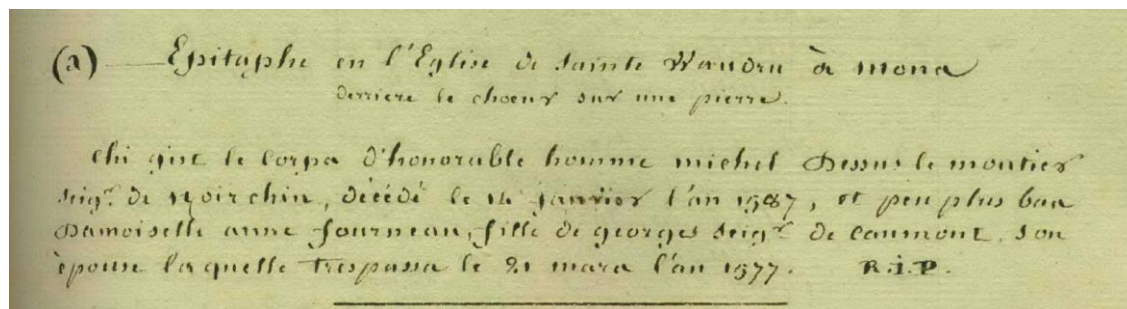 (a) Epitaphe en l'Eglise de sainte Waudru à mons
derriere le choeur sur une pierre.
chi gist le corps d'honorable homme michel Dessus le moutier
seigr. de Noirchin, décédé le 14 janvier l'an 1587, et peu plus bas
Damoiselle anne fourneau, fille de georges seigr. de caumont, son
èpouse laquelle trespassa le 21 mars l'an 1577. R.I.P.